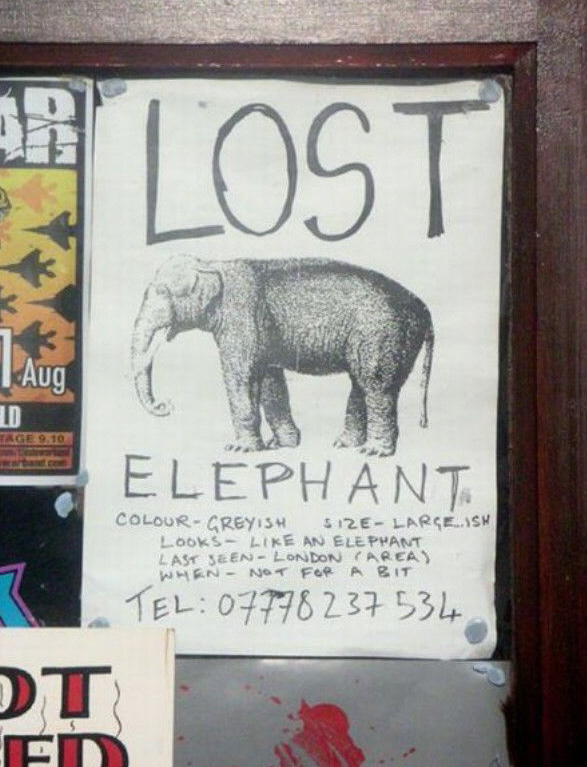 LOST
ELEPHANT
COLOUR - GREYISH SIZE - LARGE...ISH
LOOKS - LIKE AN ELEPHANT
LAST SEEN - LONDON (AREA)
WHEN - NOT FOR A BIT
TEL: 07778 237 534
AR
1 Aug
LD
TAGE 9.10
OT
ED